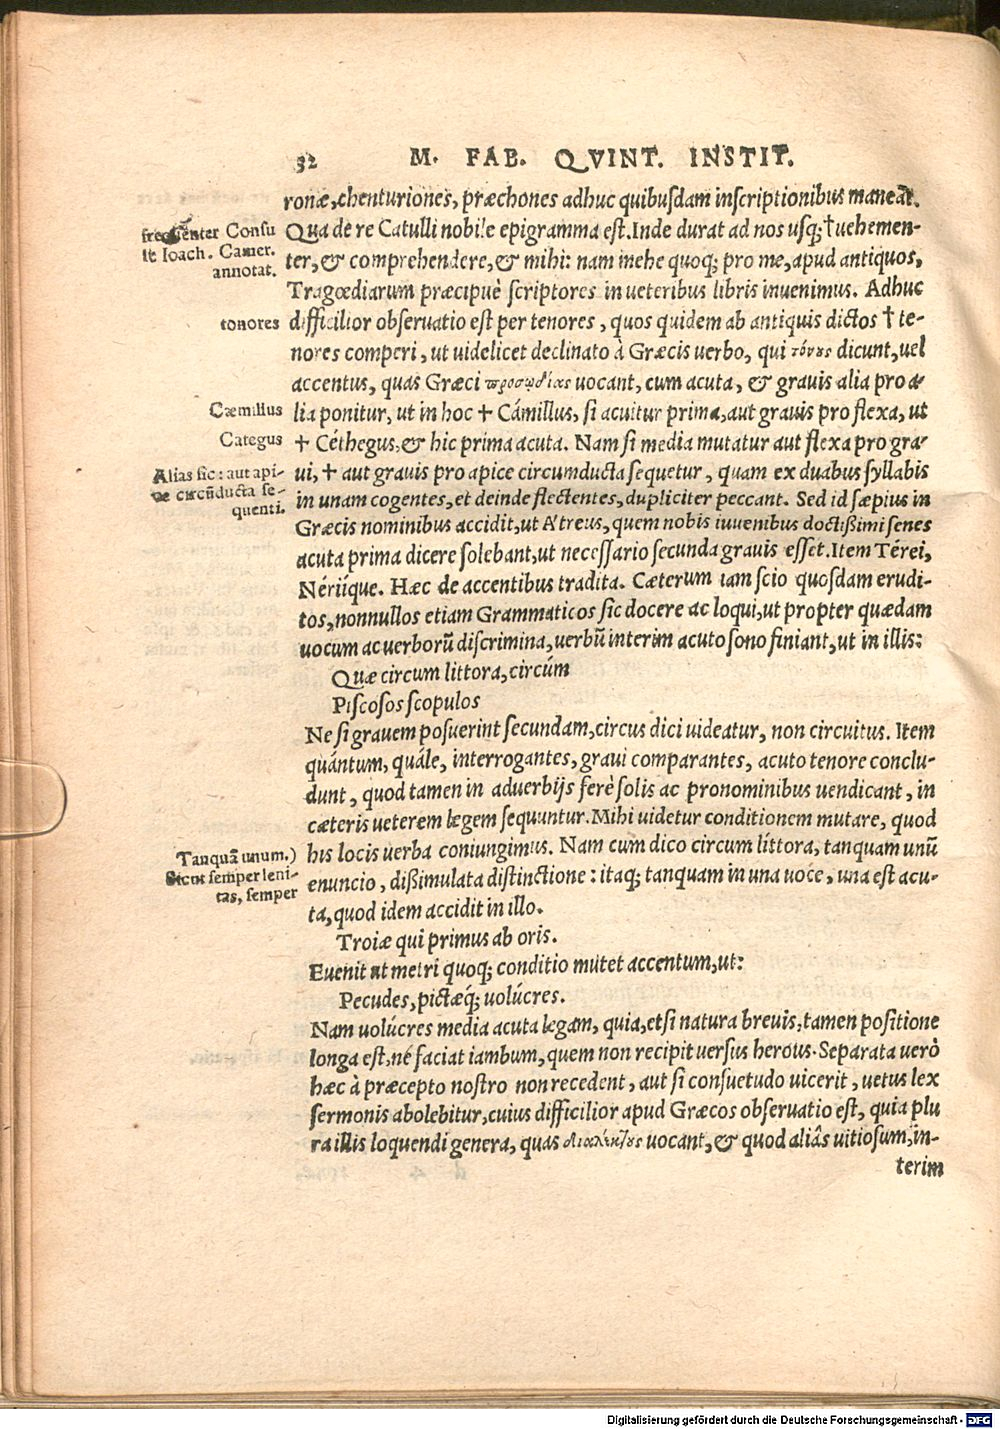 32 M. FAB. QVINT. INSTIT.
ronæ, chenturiones, præchones adhuc quibusdam inscriptionibus maneāt.
Qua de re Catulli nobile epigramma est. Inde durat ad nos usq; † uehemen-
ter, & comprehendere, & mihi: nam mehe quoq; pro me, apud antiquos,
Tragœdiarum præcipuè scriptores in ueteribus libris inuenimus. Adhuc
difficilior obseruatio est per tenores, quos quidem ab antiquis dictos † te-
nores comperi, ut uidelicet declinato à Græcis uerbo, qui τόνους dicunt, uel
accentus, quas Græci προσῳδίας uocant, cum acuta, & grauis alia pro a-
lia ponitur, ut in hoc † Cámillus, si acuitur prima, aut grauis pro flexa, ut
† Céthegus, & hic prima acuta. Nam si media mutatur aut flexa pro gra-
ui, † aut grauis pro apice circumducta sequetur, quam ex duabus syllabis
in unam cogentes, et deinde flectentes, dupliciter peccant. Sed id sæpius in
Græcis nominibus accidit, ut Atreus, quem nobis iuuenibus doctißimi senes
acuta prima dicere solebant, ut necessario secunda grauis esset. Item Térei,
Nériíque. Hæc de accentibus tradita. Cæterum iam scio quosdam erudi-
tos, nonnullos etiam Grammaticos sic docere ac loqui, ut propter quædam
uocum ac uerborū discrimina, uerbū interim acuto sono finiant, ut in illis:
Quæ circum littora, circúm
Piscosos scopulos
Ne si grauem posuerint secundam, circus dici uideatur, non circuitus. Item
quántum, quále, interrogantes, graui comparantes, acuto tenore conclu-
dunt, quod tamen in aduerbijs ferè solis ac pronominibus uendicant, in
cæteris ueterem legem sequuntur. Mihi uidetur conditionem mutare, quod
his locis uerba coniungimus. Nam cum dico circum líttora, tanquam unū
enuncio, dißimulata distinctione: itaq; tanquam in una uoce, una est acu-
ta, quod idem accidit in illo.
Troiæ qui primus ab oris.
Euenit ut metri quoq; conditio mutet accentum, ut:
Pecudes, pictæq; uolúcres.
Nam uolúcres media acuta legam, quia, etsi natura breuis, tamen positione
longa est, né faciat iambum, quem non recipit uersus herous. Separata uerò
hæc à præcepto nostro non recedent, aut si consuetudo uicerit, uetus lex
sermonis abolebitur, cuius difficilior apud Græcos obseruatio est, quia plu
ra illis loquendi genera, quas διαλέκτους uocant, & quod aliâs uitiosum, in-
terim
frequenter Consu
le Ioach. Camer.
annotat.
tonores
Cæmillus
Categus
Alias sic: aut api-
ce circūducta se-
quenti.
Tanquā unum.)
Sicut semper leni-
tas, semper
Digitalisierung gefördert durch die Deutsche Forschungsgemeinschaft - DFG